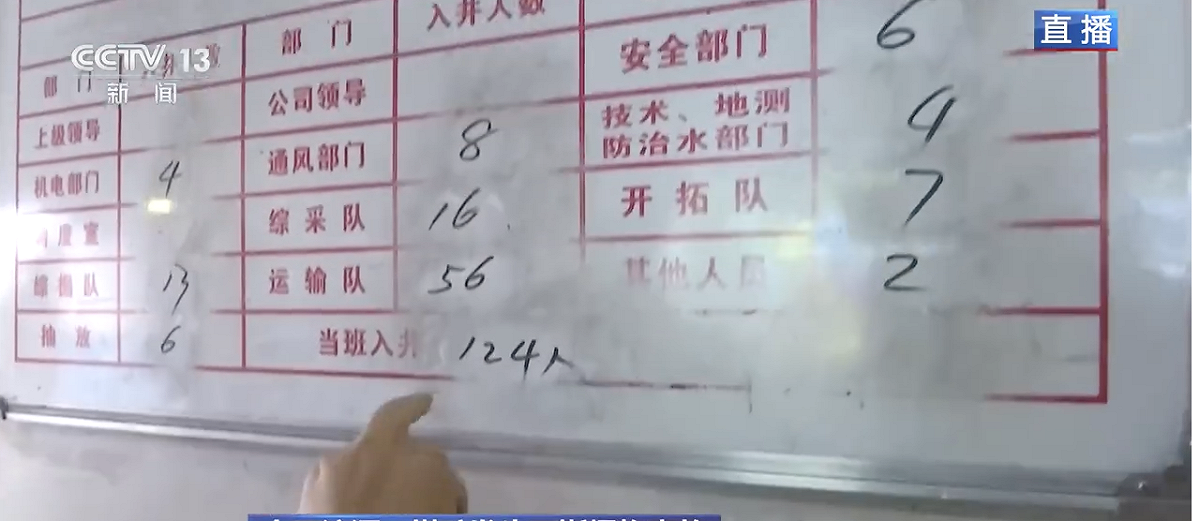 CCTV 13
新闻
直播
部门
部门 入井人数
上级领导
公司领导
机电部门 4
通风部门 8
综采队 16
综掘队 13
运输队 56
抽放 6
当班入井 124人
安全部门 6
技术、地测
防治水部门 4
开拓队 7
其他人员 2